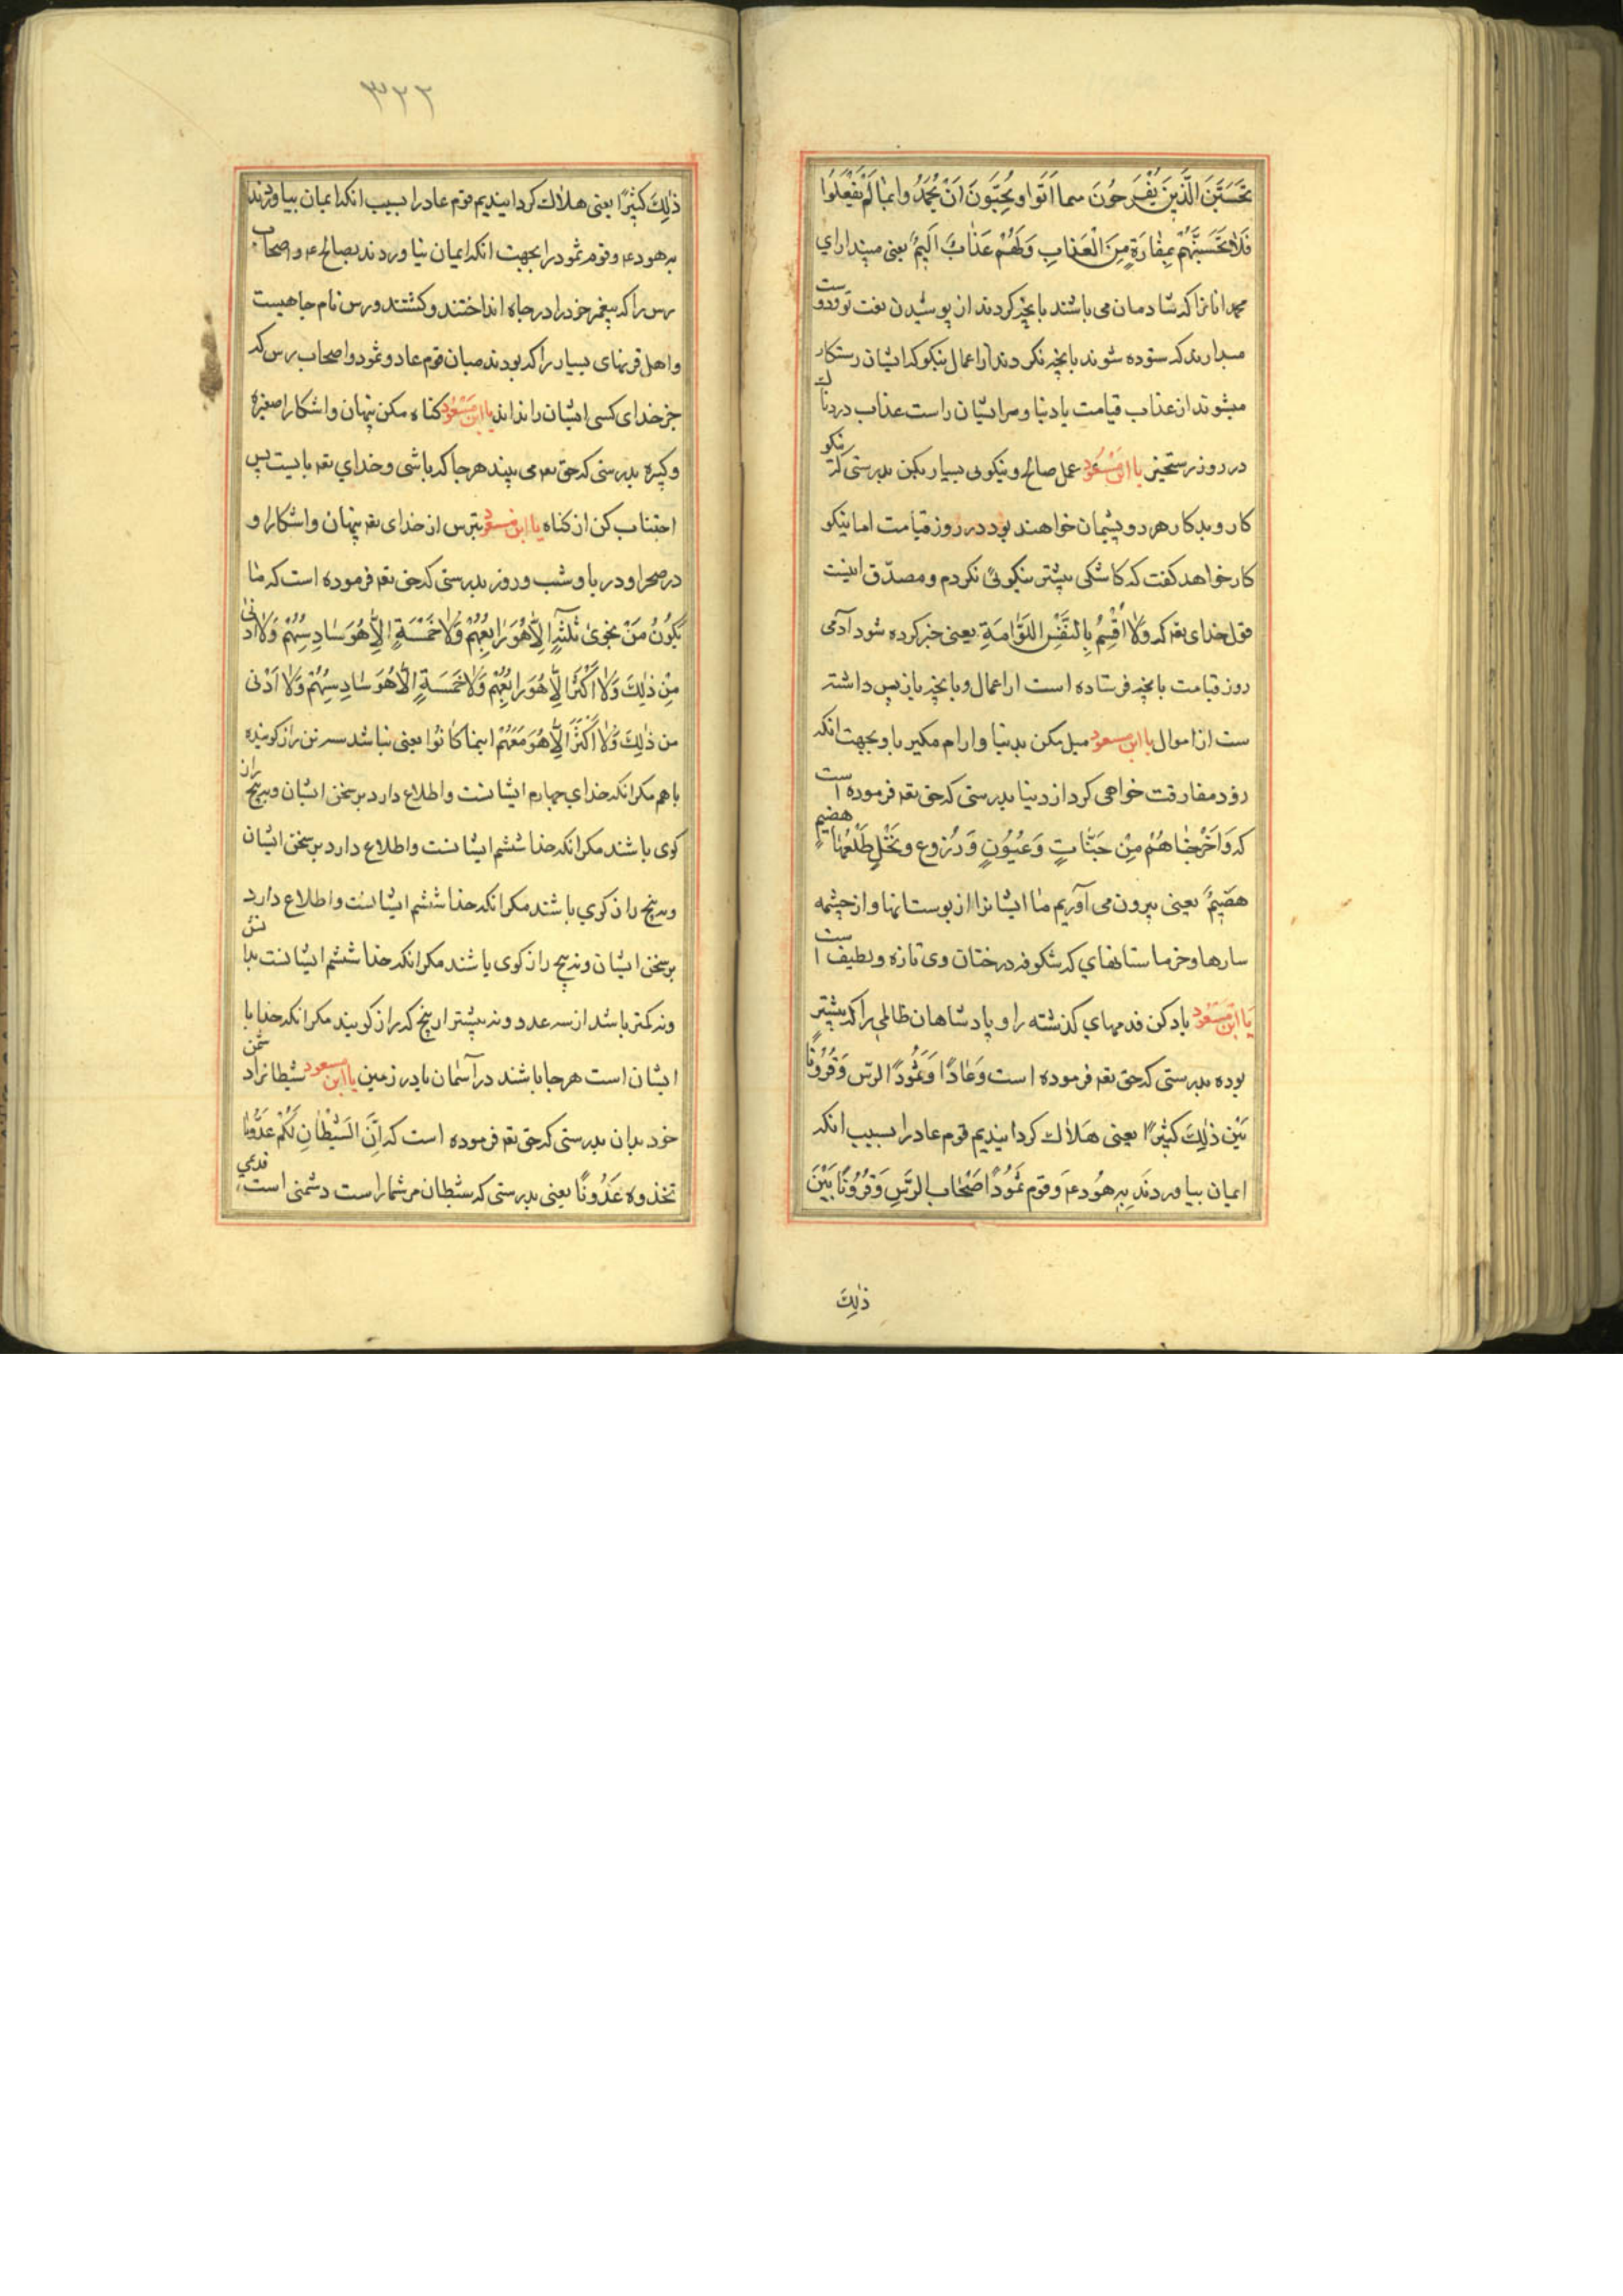 تَحَسَبَنَ الَّذِينَ يَفْرَحُونَ بما اَتَوا ويُحِبَّونَ اَنْ يُحْمَدُوا بمٰا لَمْ يَفْعَلُوا
فَلاٰ تَحْسَبَنَّهُمْ بِمِفٰازَةٍ مِنَ الْعَذٰابِ وَلَهُمْ عَذٰابٌ اَلَيِمٌ يعنى مپندار اي
محمد انانرا كه شادمان مى باشند بانچه كردند از پوشيدن نعت تو و دوست
ميدارند كه ستوده شوند بانچه نكردند از اعمال نيكو كه ايشان رستكار
ميشوند از عذاب قيامت يا دنيا و مر ايشان راست عذاب دردناك
در روز رستخيز يا ابن مَسْعُود عمل صالح و نيكوبى بسيار بكن بدرستى كه نيكو
كار و بدكار هر دو پشيمان خواهند بود در روز قيامت اما نيكو
كار خواهد كفت كه كاشكى بيشتر نيكوئى نكردم و مصدّق اينست
قول خداى تعه كه وَلاٰ اُقْسِمُ بِالنَفْسِ اللَوّٰامَةِ يعنى خبر كرده شود آدمى
روز قيامت بانچه فرستاده است از اعمال و بانچه باز پس داشته
ست از اموال يا ابن مسعود ميل مكن بدنيا و ارام مكير باو بجهت انكه
زود مفارقت خواهى كرد از دنيا بدرستى كه حق تعه فرموده است
كه وَاَخْرَجْنٰاهُمْ مِنْ جَنّٰاتٍ وَعُيُونٍ وَزُرُوع ونَخْلٍ طَلْعُهٰا هضيم
هضَيِمٌ يعنى بيرون مى آوريم مٰا ايشانرا از بوستانها و از چشمه
سارها و خرماستانهاي كه شكوفه درختان وى تازه و لطيف است
يٰا ابْن مَسْعُود ياد كن قدمهاي كذشته را و پادشاهان ظالمى را كه پيشتر
بوده بدرستى كه حق تعه فرموده است وَعٰادًا وَثَمُودًا الرسّ وَقُرُونًا
بَيْن ذٰلِكَ كَثِيرًا يعنى هَلاٰك كردانيديم قوم عاد را بسبب انكه
ايمان نياوردند بِه هُود عه وَقوم ثَمُود اَصْحٰاب الرَسِّ وَقُرُونًا بَيْنَ
ذٰلِكَ
٣٢٢
ذٰلِكَ كَثِيرًا يعنى هلاٰك كردانيديم قوم عاد را بسبب انكه ايمان نياوردند
به هود عه و قوم ثمود را بجهت انكه ايمان نياوردند بصالح عه و اصحاب
رس را كه پيغمبر خود را در چاه انداختند و كشتند و رس نام چاهيست
و اهل قرنهاى بسيار را كه بودند ميان قوم عاد و ثمود و اصحاب رس كه
جز خداى كسى ايشان را نداند يا ابن مَسْعُود كناه مكن پنهان و اشكارا صغيره
و كبيره بدرستى كه حق تعه مى بيند هر جا كه باشى و خداي تعه با يست پس
اجتناب كن از كناه يا ابن مسعود بترس از خداى تعه پنهان و اشكارا و
در صحرا و دريا و شب و روز بدرستى كه حق تعه فرموده است كه مٰا
يَكُونُ مَنْ نجْوىٰ ثَلٰثَةٍ اِلاّٰ هُوَ رٰابِعُهُمْ وَلاٰ خَمْسَةٍ اِلاّٰ هُوَ سٰادِسُهُمْ وَلاٰ ادنى
مِنْ ذٰلِكَ وَلاٰ اَكْثَرَ اِلاّٰ هُوَ رابِعُهُمْ وَلاٰ خَمَسَةٍ اِلاّٰ هُوَ سٰادِسُهُمْ وَلاٰ اَدْنى
من ذٰلِكَ وَلاٰ اَكْثَرَ اِلاّٰ هُوَ مَعَهُمْ اينما كٰانُوا يعنى نباشد سه تن راز كوينده
باهم مكر انكه خداي چهارم ايشانست و اطلاع دارد بر سخن ايشان و نه پنج راز
كوى باشند مكر انكه خدا ششم ايشانست و اطلاع دارد بر سخن ايشان
و نه پنج راز كوي باشند مكر انكه خدا ششم ايشانست و اطلاع دارد
بر سخن ايشان و نه پنج راز كوى باشند مكر انكه خدا ششم ايشانست
و نه كمتر باشد از سه عدد و نه بيشتر از پنج كه راز كويند مكر انكه خدا با
ايشان است هر جا باشند در آسمٰان يا در زمين يا ابن مسعود شيطانرا دشمن
خود بدان بدرستى كه حق تعه فرموده است كه اِنَّ الَشَيْطٰانِ لَكُمْ عَدُوٌّفا
تخذوه عَدُوًّا يعنى بدرستى كه شيطان مر شما راست دشمنى است قديمي